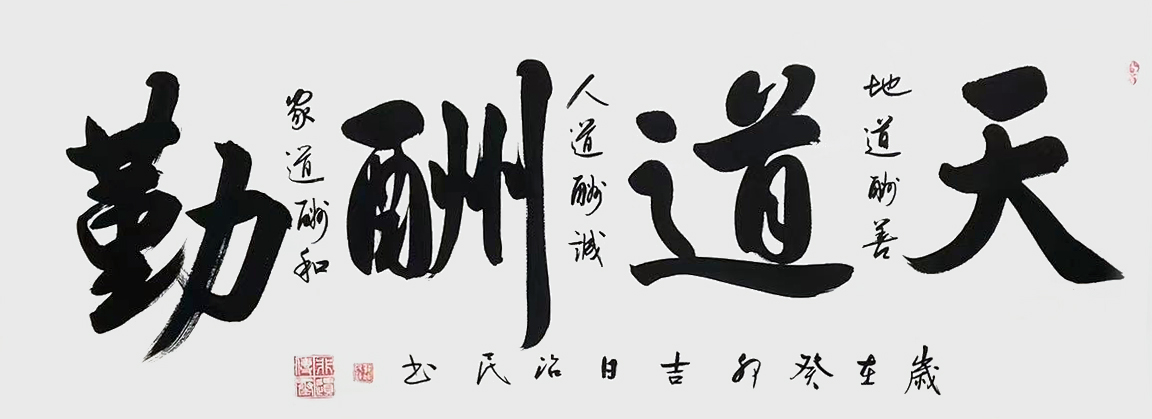 天道酬勤
地道酬善
人道酬誠
家道酬和
歲在癸卯吉日治民书